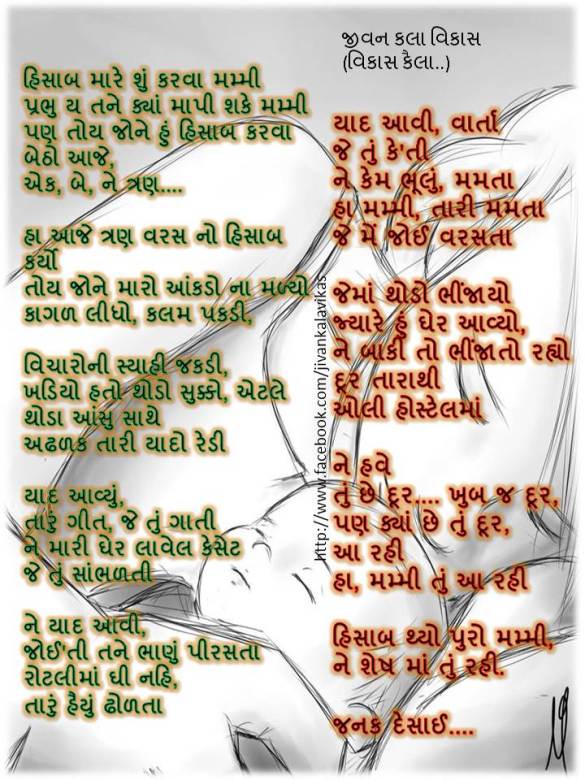 જીવન કલા વિકાસ
(વિકાસ કૈલા..)
હિસાબ મારે શું કરવા મમ્મી
પ્રભુ ય તને ક્યાં માપી શકે મમ્મી
પણ તોય જોને હું હિસાબ કરવા
બેઠો આજે,
એક, બે, ને ત્રણ....
હા આજે ત્રણ વરસ નો હિસાબ
કર્યો
તોય જોને મારો આંકડો ના મળ્યો
કાગળ લીધો, કલમ પકડી,
વિચારોની સ્યાહી જકડી,
ખડિયો હતો થોડો સુક્કો, એટલે
થોડા આંસુ સાથે
અઢળક તારી યાદો રેડી
યાદ આવ્યું,
તારું ગીત, જે તું ગાતી
ને મારી ઘેર લાવેલ કેસેટ
જે તું સાંભળતી
ને યાદ આવી,
જોઈ'તી તને ભાણું પીરસતા
રોટલીમાં ઘી નહિ,
તારું હૈયું ઢોળતા
યાદ આવી, વાર્તા
જે તું કે'તી
ને કેમ ભૂલું, મમતા
હા મમ્મી, તારી મમતા
જે મેં જોઈ વરસતા
જેમાં થોડો ભીંજાયો
જ્યારે હું ઘેર આવ્યો,
ને બાકી તો ભીંજાતો રહ્યો
દૂર તારાથી
ઓલી હોસ્ટેલમાં
ને હવે
તું છે દૂર.... ખુબ જ દૂર,
પણ ક્યાં છે તું દૂર,
આ રહી
હા, મમ્મી તું આ રહી
હિસાબ થ્યો પુરો મમ્મી,
ને શેષ માં તું રહી.
જનક દેસાઈ....
http://www.facebook.com/jivankalavikas